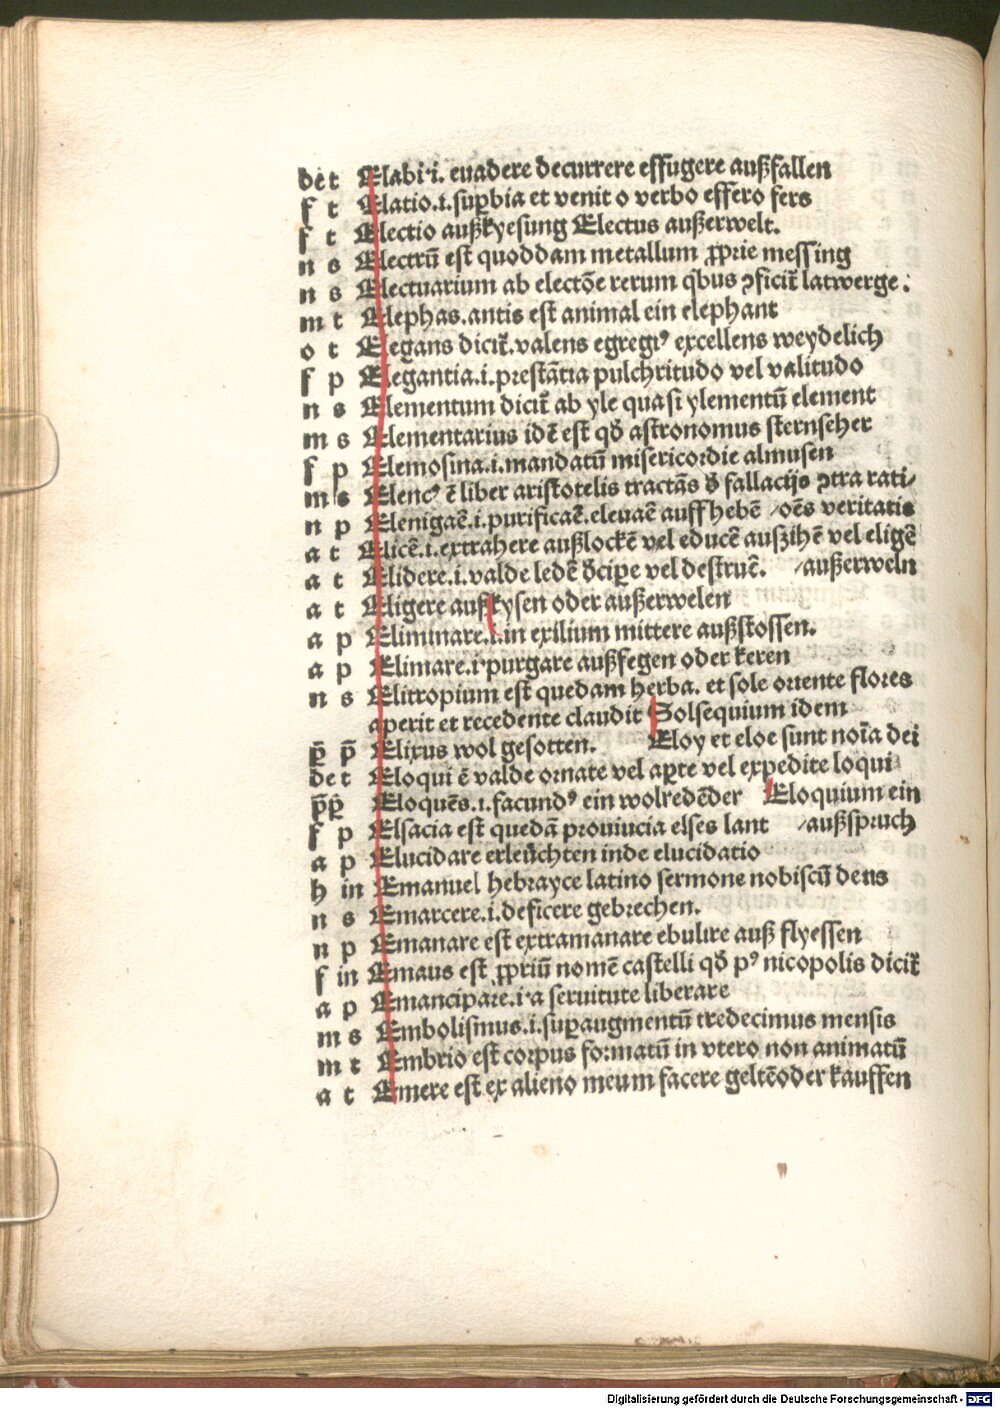 de t Elabi·i. euadere decurrere effugere außfallen
f t Elatio.i.suꝑbia et venit o verbo effero fers
f t Electio außkyesung Electus außerwelt.
n s Electrū est quoddam metallum ꝓprie messing
n s Electuarium ab electōe rerum qͥbus ꝯficit᷑ latwerge :
m t Elephas.antis est animal ein elephant
o t Elegans dicit᷑.valens egregiꝰ excellens weydelich
f p Elegantia.i.prestātia pulchritudo vel valitudo
n s Elementum dicit᷑ ab yle quasi ylementū element
m s Elementarius idē est qd̄ astronomus sternseher
f p Elemosina.i.mandatū misericordie almusen
m s Elencꝰ ē liber aristotelis tractās d̄ fallacijs ꝯtra rati⸗
n p Elenigaē.i.purificaē.eleuaē auffhebē /oēs veritatis
a t Elicē.i.extrahere außlockē vel educē außzihē vel eligē
a t Elidere.i.valde ledē d̄ciꝑe vel destruē. /außerweln
a t Eligere außkysen oder außerwelen
a p Eliminare.i.in exilium mittere außstossen.
a p Elimare.i·purgare außfegen oder keren
n s Elitropium est quedam herba. et sole oriente flores
aperit et recedente claudit Solsequium idem
p̄ p̄ Elixus wol gesotten. Eloy et eloe sunt noīa dei
de t Eloqui ē valde ornate vel aꝑte vel expedite loqui
p̄ p̄ Eloquēs.i.facundꝰ ein wolredēder Eloquium ein
f p Elsacia est quedā prouiucia elses lant /außspruch
a p Elucidare erleüchten inde elucidatio
h in Emanuel hebrayce latino sermone nobiscū deus
n s Emarcere.i.deficere gebrechen.
n p Emanare est extramanare ebulire auß flyessen
f in Emaus est ꝓpriū nomē castelli qd̄ pꝰ nicopolis dicit᷑
a p Emancipare.i·a seruitute liberare
m s Embolismus.i.suꝑaugmentū tredecimus mensis
m t Embrio est corpus formatū in vtero non animatū
a t Emere est ex alieno meum facere geltēoder kauffen
Digitalisierung gefördert durch die Deutsche Forschungsgemeinschaft - DFG